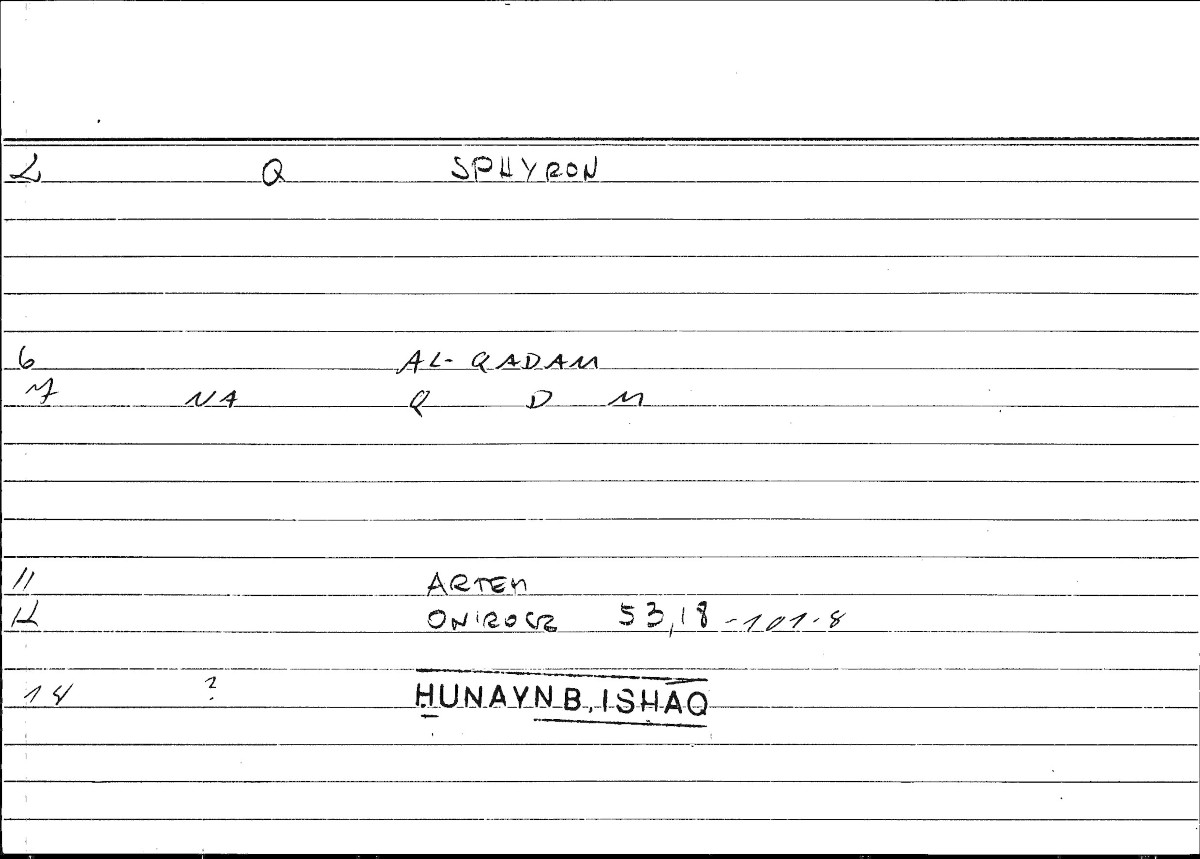 2 Q SPHYRON
6 AL-QADAM
7 NA Q D M
11 ARTEM
12 ONIROCR 53,18-101.8
14 ? HUNAYN B. ISHAQ